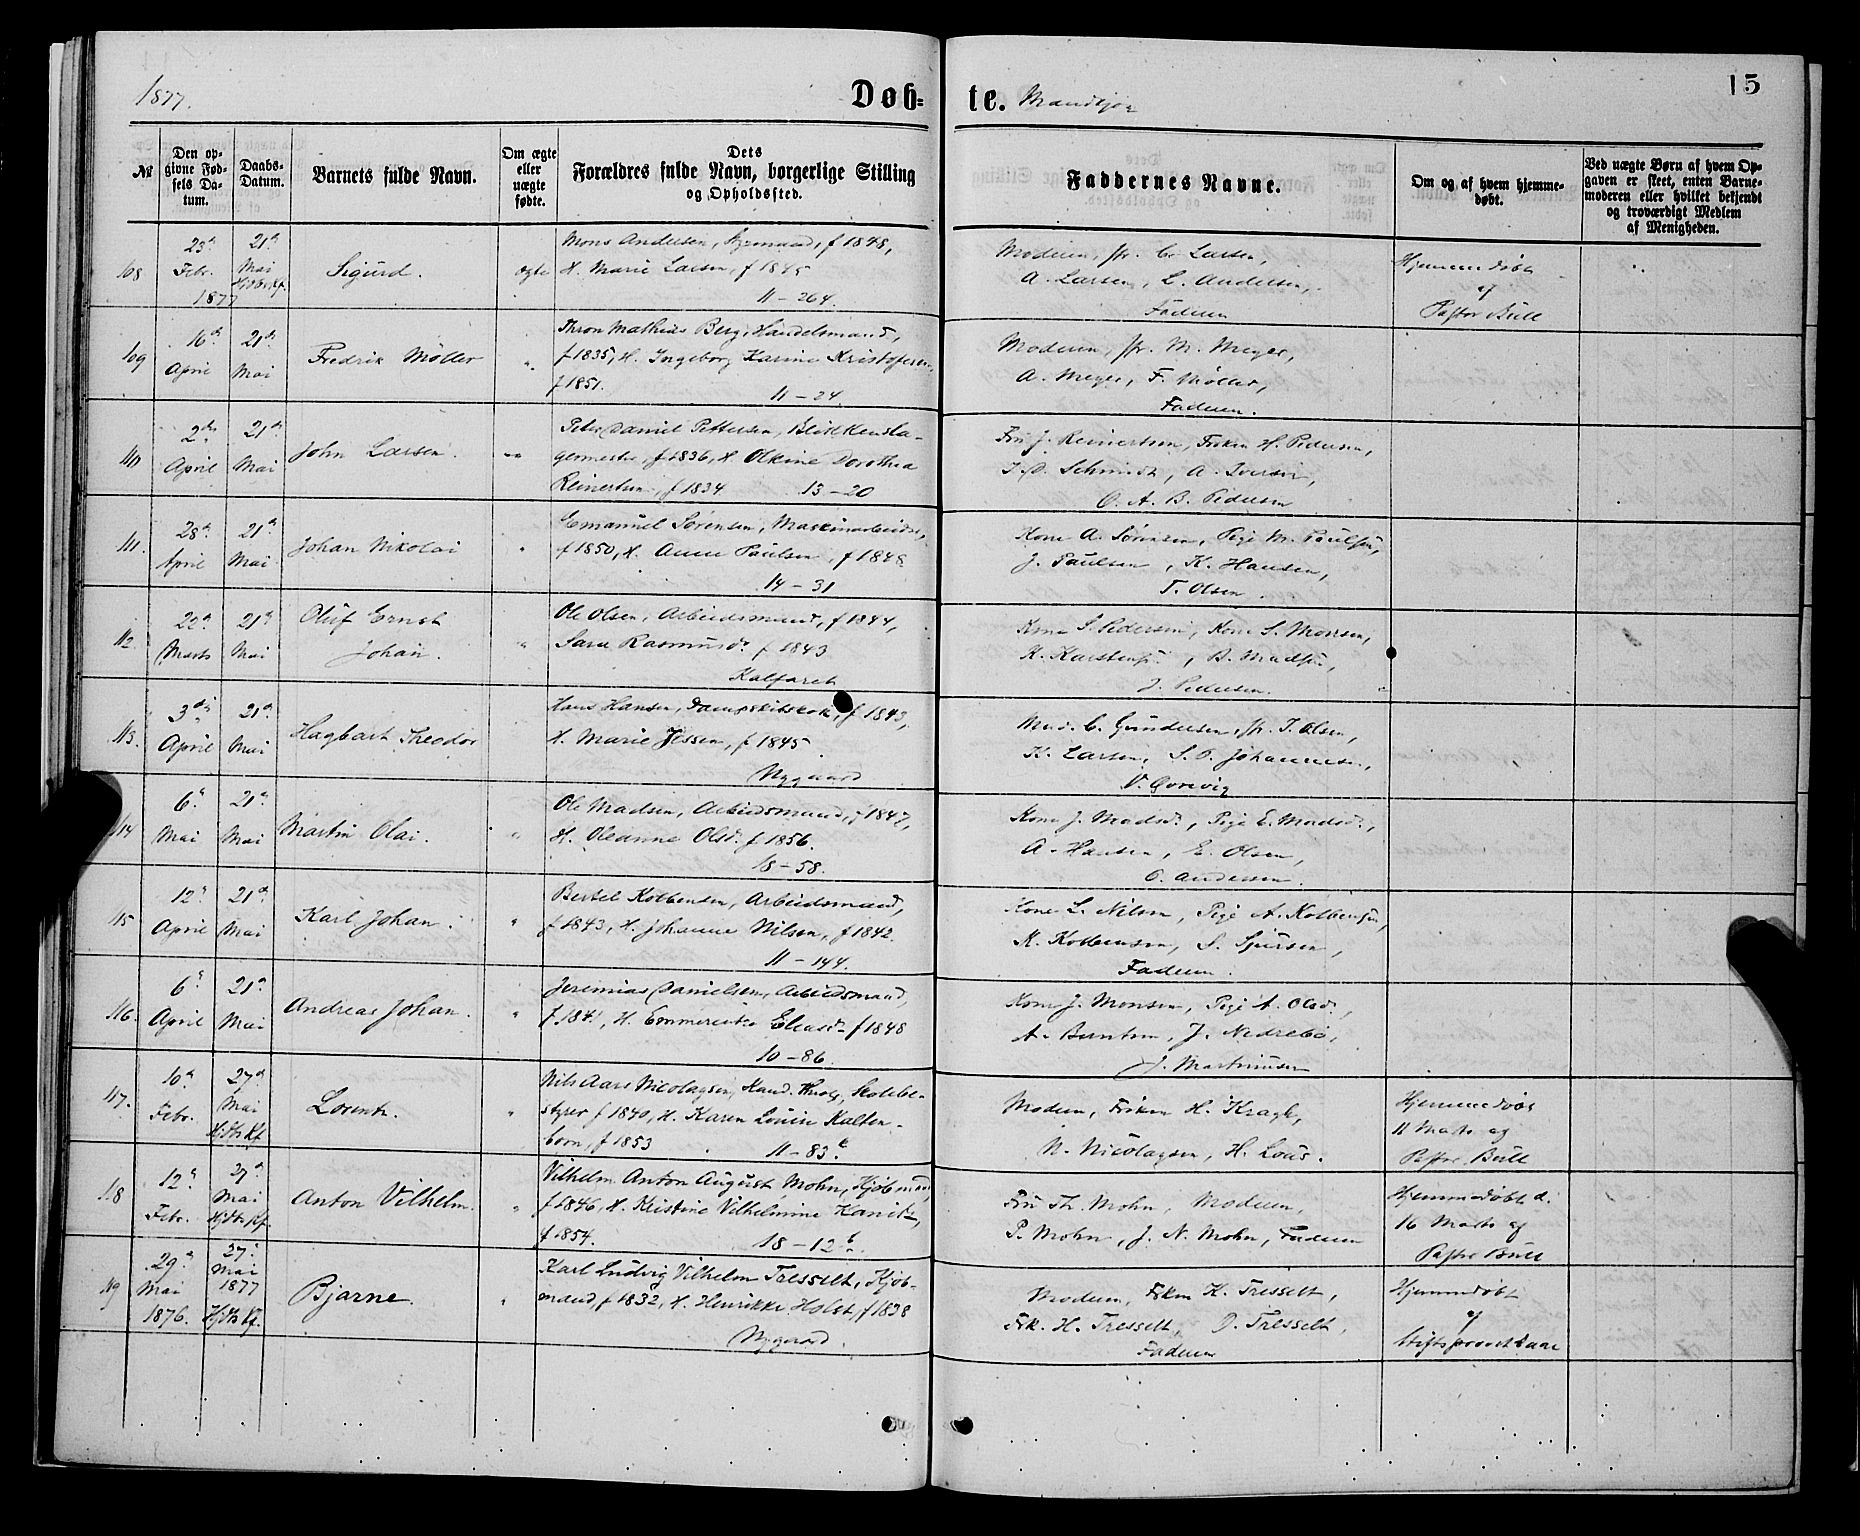 1877.
Døb=
te. Mandkjøn
15
№
Den op-
givne Fød-
sels Da-
tum.
Daabs-
Datum.
Barnets fulde Navn.
Om ægte
eller
uægte
fødte.
Dets
Forældres fulde Navn, borgerlige Stilling
og Opholdssted.
Faddernes Navne.
Om og af hvem hjemme-
døbt.
Ved uægte Børn af hvem Op-
gaven er skeet, enten Barne-
moderen eller hvilket bekjendt
og troværdigt Medlem
af Menigheden.
108
23d
Febr.
1877
21d
Mai
Hjdbs Kf.
Sigurd.
ægte
Mons Andersen, Styrmand, f 1848,
H. Marie Larsen, f 1845
11 – 264.
Moderen, fr. C. Larsen,
A. Larsen, L. Andersen,
Faderen
Hjemmedøbt
af
Pastor Bull
109
16d
April
21d
Mai
Fredrik Møller
"
Thron Mathias Berg, Handelsmand,
f 1835, H. Ingeborg Karine Kristofersen,
f 1851.
11 – 24.
Moderen, fr. M. Meyer,
A. Meyer, F. Møller,
Faderen.
110
2den
April
21d
Mai
John Larsen.
"
Peter Daniel Pettersen, Blikkensla-
germester, f 1836, H. Olkine Dorothea
Reinertsen, f 1834 13 – 20
Fru J. Reinertsen, Frøken H. Pedersen,
Schmidt, A. Iversen,
O. A. B. Pedersen
111.
28d
April
21d
Mai
Johan Nikolai
"
Emanuel Sørensen, Maskinarbeider,
f 1850, H. Anne Paulsen, f 1848
14 – 31
Kone A. Sørensen, Pige M. Paulsen,
J. Paulsen, K. Hansen,
T. Olsen.
112
22d
Marts
21d
Mai
Oluf Ernst
Johan.
"
Ole Olsen, Arbeidsmand, f 1844,
Sara Rasmusd. f 1843
Kalfaret
Kone S. Pedersen, Kone S. Monsen,
K. Karstensen, B. Madsen,
J. Pedersen.
113.
3die
April
21d
Mai
Hagbart Theodor
Hans Hansen, Dampskibskok, f 1843,
H. Marie Jessen, f 1845
Nygaard
Mad. C. Gundersen, fr. I. Olsen,
K. Larsen, S. O. Johannesen,
V. Gorevig
114
6d
Mai
21d
Mai
Martin Olai.
"
Ole Madsen, Arbeidsmand, f 1847,
H. Oleanne Olsd. f 1856.
18 – 58.
Kone J. Madsd., Pige E. Madsd.,
A. Hansen, E. Olsen,
O. Andersen.
115
12d
April
21d
Mai
Karl Johan.
"
Bertel Kolbensen, Arbeidsmand,
f 1843, H. Johanne Nilsen, f 1842.
11 – 144.
Kone L. Nilsen, Pige A. Kolbensen,
K. Kolbensen, S. Sjursen,
Faderen.
116.
6d
April
21d
Mai
Andreas Johan.
"
Jeremias Danielsen, Arbeidsmand,
f 184, H. Emmerentse Eliasd. f 1848
10 – 86.
Kone J. Monsen, Pige A. Olsd.,
A. Berntsen, J. Nedrebø,
J. Martinusen
117.
10d
Febr.
27d
Mai
Hjdbs Kf
Lorentz.
"
Nils Aars Nicolaysen, Kand. theol., Skolebe-
styrer f 1840, H. Karen Louise Kalten-
born, f 1853 11 – 83c
Moderen, Frøken H. Kragh,
N. Nicolaysen, H. Lous.
Hjemmedøbt
11 Marts af
Pastor Bull
118
12d
Febr.
27d
Mai
Hjdbs Kf.
Anton Vilhelm.
"
Vilhelm Anton August Mohn, Kjøbmand,
f 1846, H. Kristine Vilhelmine Konit,
f 1854. 18 – 12b
Fru Th. Mohn, Moderen,
P. Mohn, J. N. Mohn, Faderen
Hjemmedøbt d.
16 Marts af
Pastor Bull
119
29d
Mai
1876.
27d
Mai
1877
Hjdbs Kf.
Bjarne.
"
Karl Ludvig Vilhelm Tresselt, Kjøb-
mand, f 1832, H. Henrikke Holst, f 1838
Nygaard.
Moderen, Frøken K. Tresselt,
Frk. H. Tresselt, D. Tresselt,
Faderen
Hjemmedøbt
af
Stiftsprovst Kaar